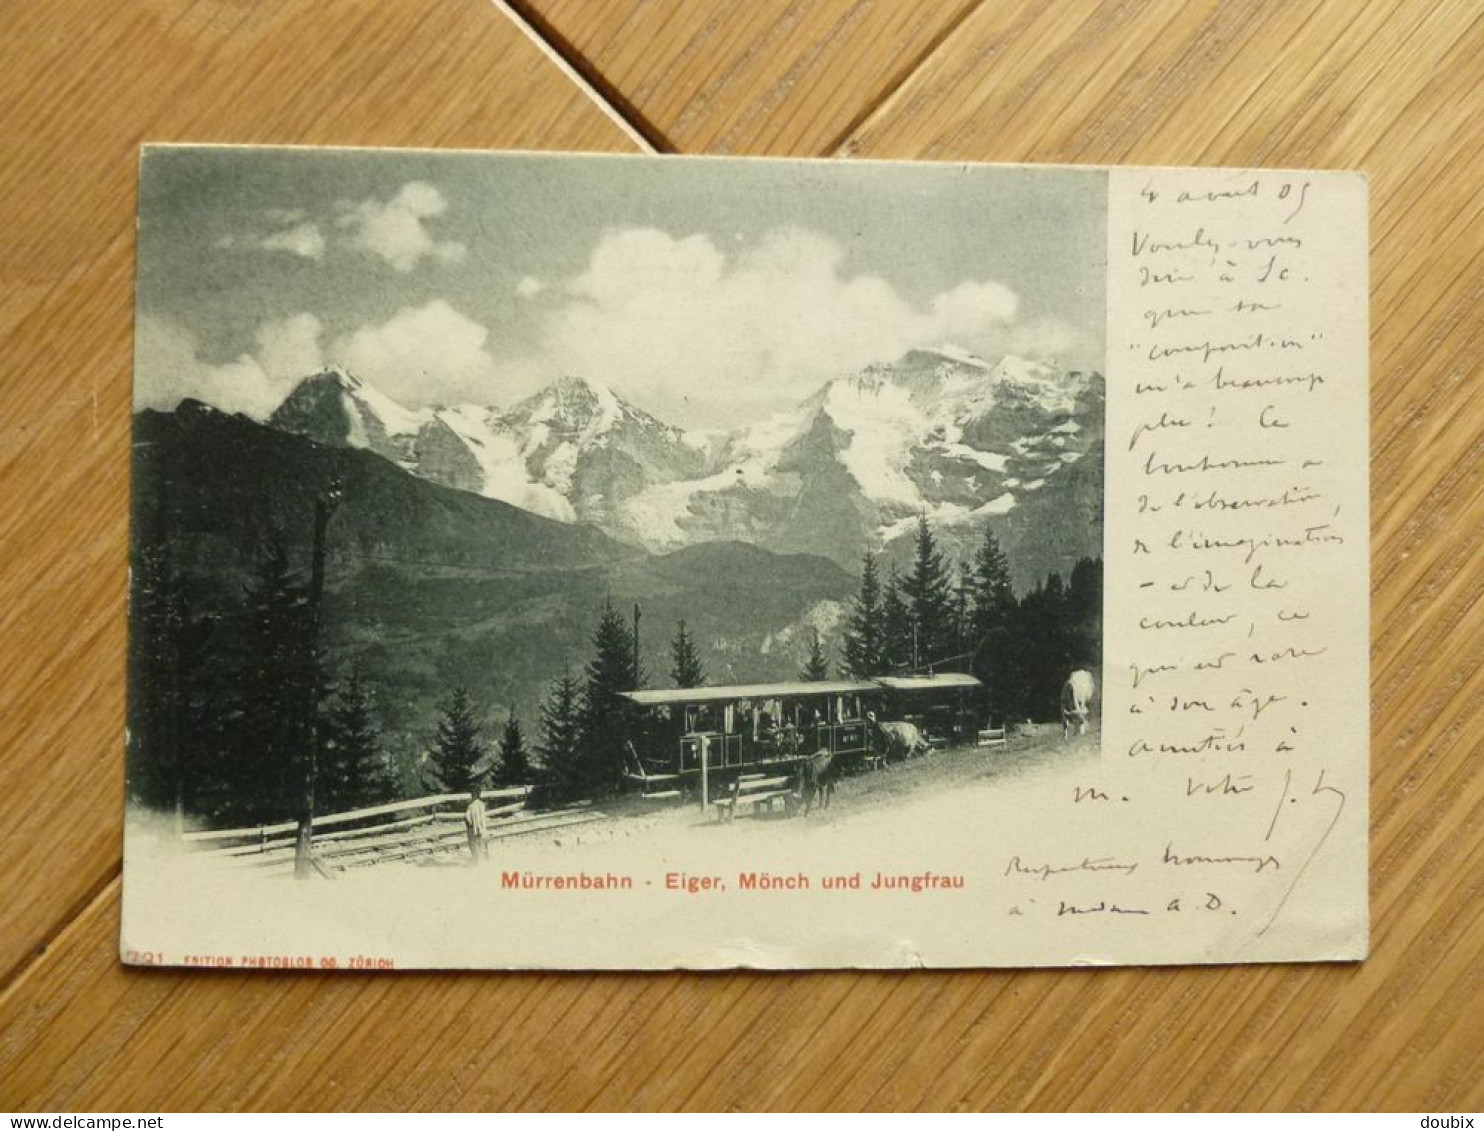 4 août 05
Voulez-vous
dire à
que sa
"composition"
m'a beaucoup
plu! Ce
bonhomme a
de l'observation,
de l'imagination
- et de la
couleur, ce
qui est rare
à son âge.
Amitiés à
M. Votre
Respectueux hommages
à Madame A.D.
Mürrenbahn - Eiger, Mönch und Jungfrau
EDITION PHOTOGLOB CO. ZÜRICH
www.delcampe.net
doubix